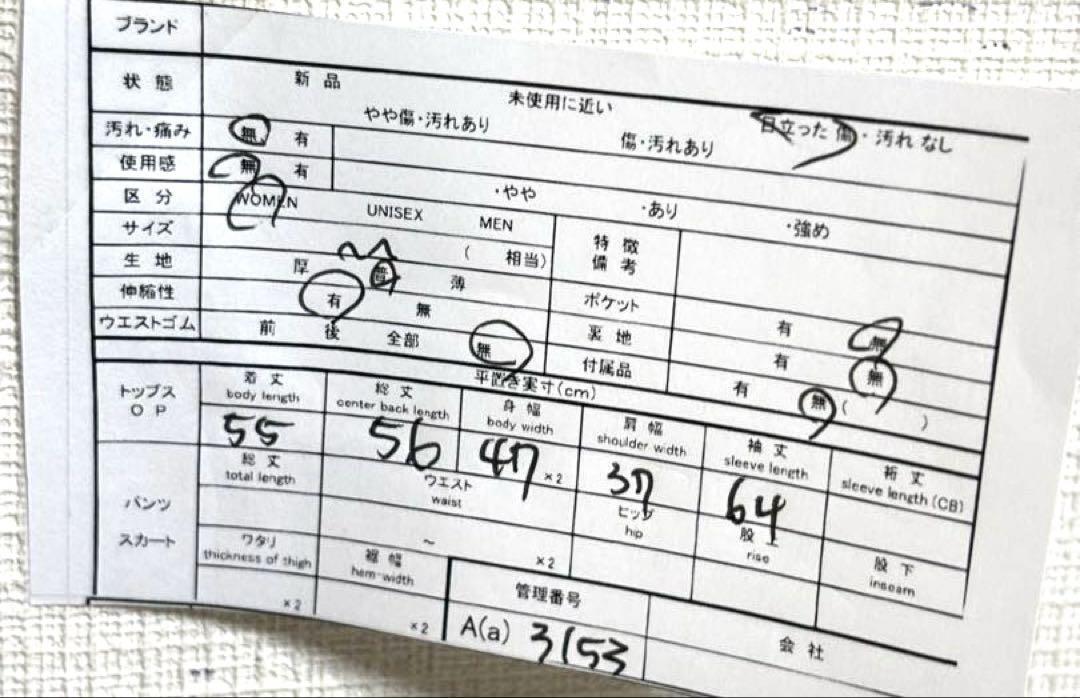 ブランド
状態 新品 未使用に近い 目立った傷・汚れなし
やや傷・汚れあり 傷・汚れあり
汚れ・痛み 無 有
使用感 無 有 ・やや ・あり ・強め
区分 WOMEN UNISEX MEN
サイズ ( 相当)
特徴
備考
生地 厚 普 薄
ポケット 有 無
伸縮性 有 無
裏地 有 無
ウエストゴム 前 後 全部 無
付属品 有 無 ( )
平置き実寸(cm)
トップス
OP
着丈 総丈 身幅 肩幅 袖丈 裄丈
body length center back length body width shoulder width sleeve length sleeve length (CB)
55 56 47 ×2 37 64
パンツ
スカート
総丈 ウエスト ヒップ 股上 股下
total length waist hip rise inseam
~ ×2
ワタリ 裾幅
thickness of thigh hem-width
×2 ×2
管理番号 会社
A(a) 3153